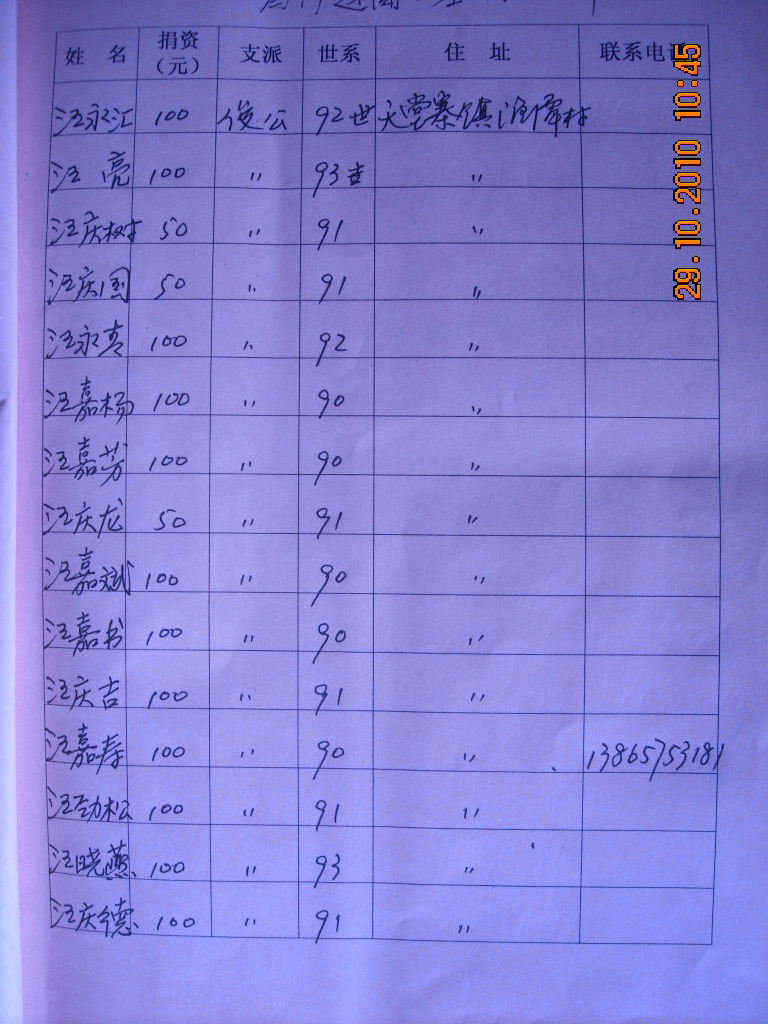 姓 名 捐资（元） 支派 世系 住 址 联系电话
汪永汇 100 俊公 92世 天堂寨镇 村
汪 亮 100 〃 93世 〃
汪庆树 50 〃 91 〃
汪庆国 50 〃 91 〃
汪永青 100 〃 92 〃
汪嘉杨 100 〃 90 〃
汪嘉芳 100 〃 90 〃
汪庆龙 50 〃 91 〃
汪嘉斌 100 〃 90 〃
汪嘉书 100 〃 90 〃
汪庆吉 100 〃 91 〃
汪嘉寿 100 〃 90 〃 13865753181
汪劲松 100 〃 91 〃
汪晓燕 100 〃 93 〃
汪庆德 100 〃 91 〃
29.10.2010 10:45